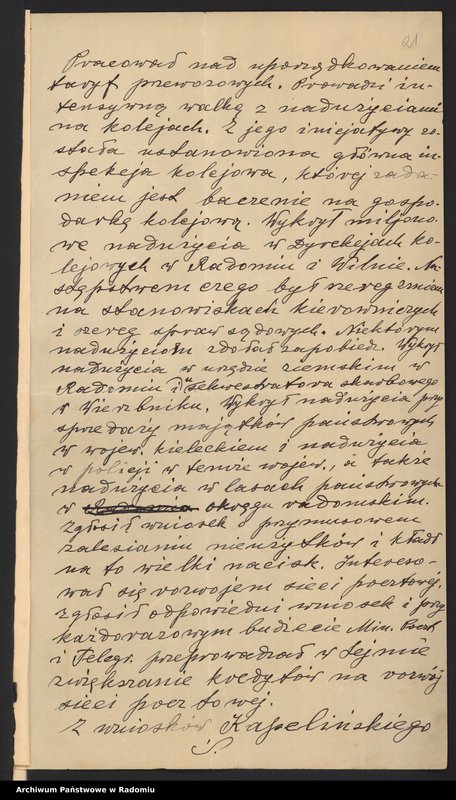 21
Pracował nad uporządkowaniem
taryf przewozowych. Prowadzi in-
tensywną walkę z nadużyciami
na kolejach. Z jego inicjatywy zo-
stała ustanowiona główna in-
spekcja kolejowa, której zada-
niem jest baczenie na gospo-
darkę kolejową. Wykrył miljono-
we nadużycia w Dyrekcjach ko-
lejowych w Radomiu i Wilnie. Na-
stępstwem czego był szereg zmian
na stanowiskach kierowniczych
i szereg spraw sądowych. Niektórym
nadużyciom zdołał zapobiedz. Wykrył
nadużycia w urzędzie ziemskim w
Radomiu i u sekwestratora skarbowego
w Wierzbniku. Wykrył nadużycia przy
sprzedaży majątków państwowych
w wojew. kieleckiem i nadużycia
w policji w temże wojew., a także
nadużycia w lasach państwowych
w okręgu radomskim.
Zgłosił wniosek o przymusowem
zalesianiu nieużytków i kładł
na to wielki nacisk. Intereso-
wał się rozwojem sieci pocztowej,
zgłosił odpowiedni wniosek i przy
każdorazowym budżecie Min. Poczt
i Telegr. przeprowadzał w Sejmie
zwiększanie kredytów na rozwój
sieci pocztowej.
Z wniosków Kapelińskiego
Archiwum Państwowe w Radomiu